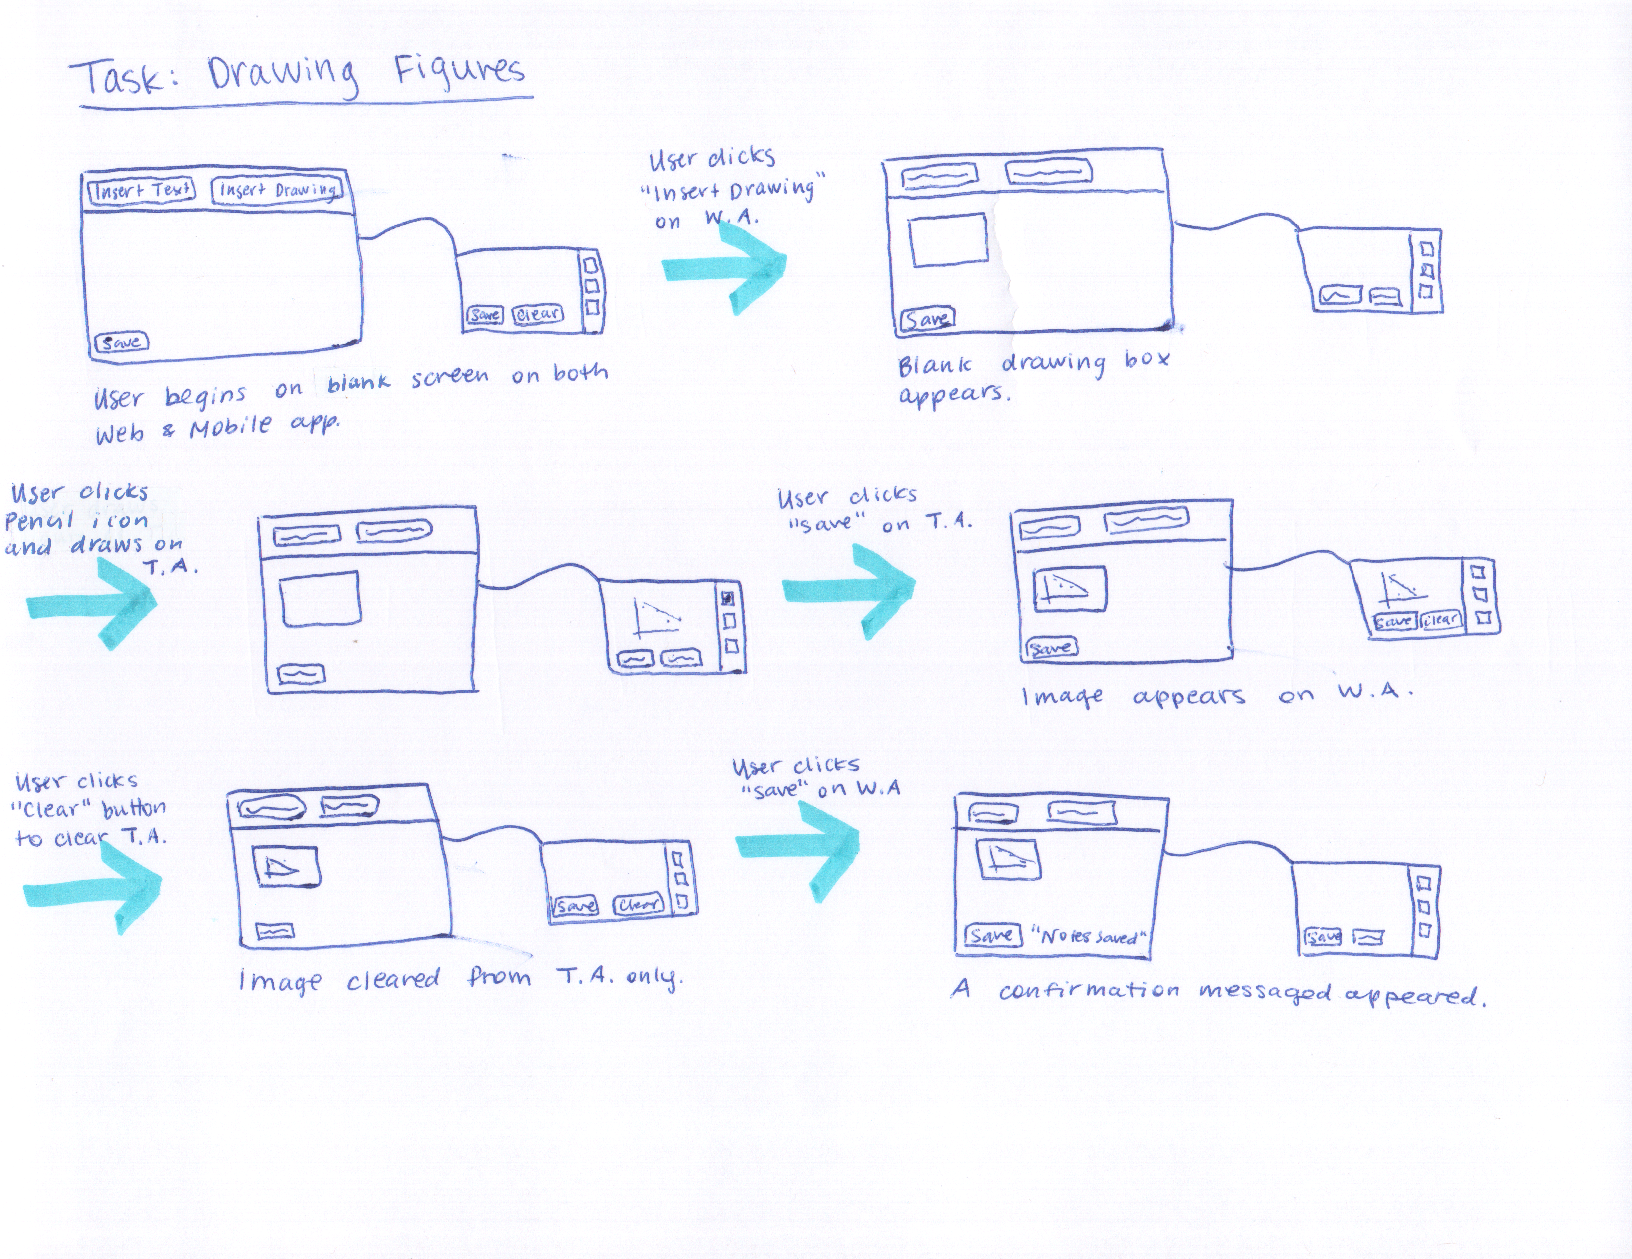 Task: Drawing Figures
Insert Text
Insert Drawing
Save
Save
Clear
User begins on blank screen on both
Web & Mobile app.
User clicks
"Insert Drawing"
on W.A.
Save
Blank drawing box
appears.
User clicks
Pencil icon
and draws on
T.A.
User clicks
"save" on T.A.
Save
Save
Clear
Image appears on W.A.
User clicks
"Clear" button
to clear T.A.
Save
Clear
Image cleared from T.A. only.
User clicks
"save" on W.A
Save
"Notes saved"
Save
A confirmation messaged appeared.